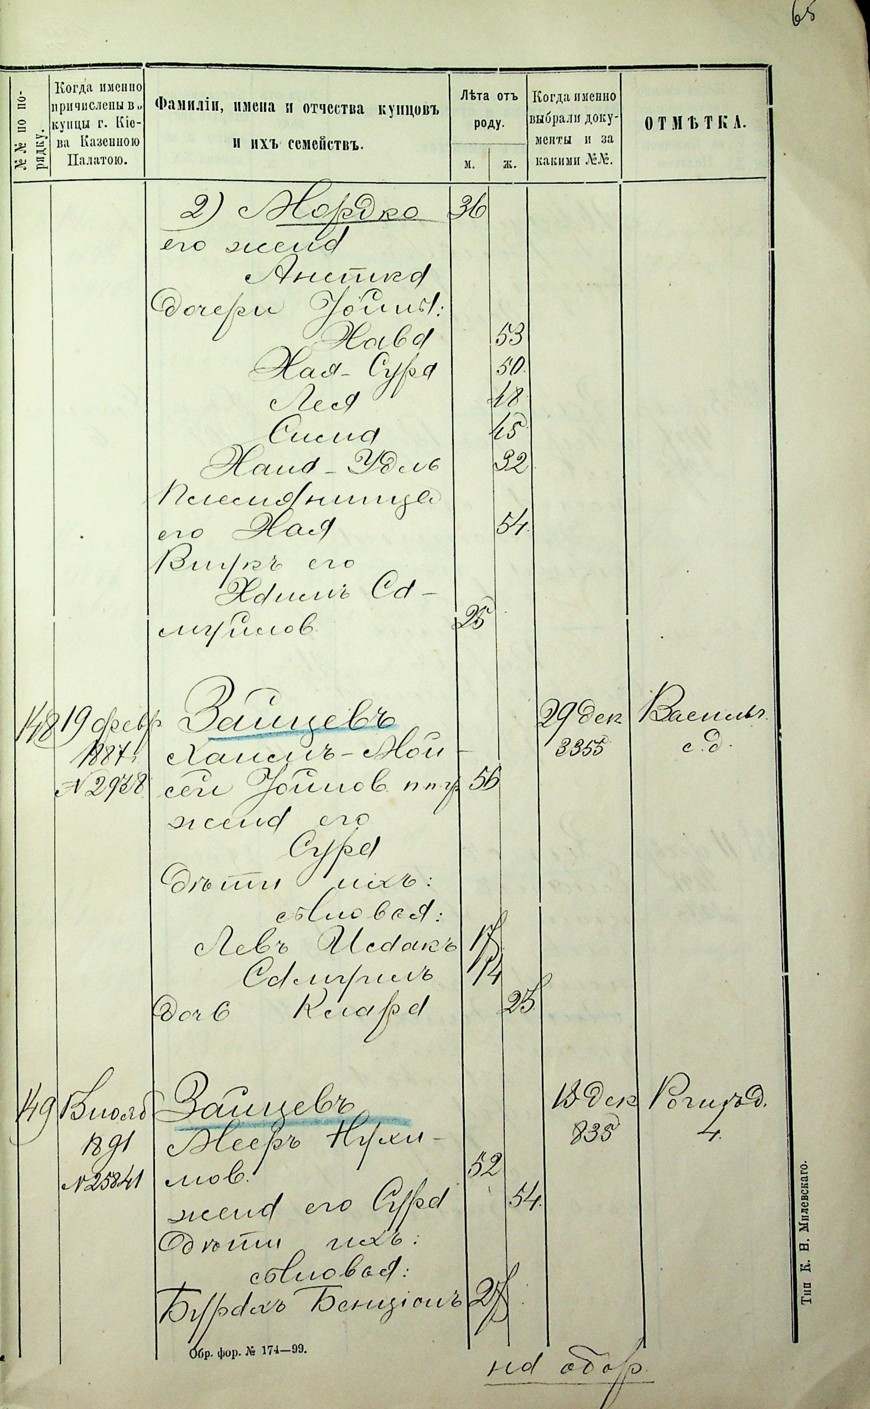 65
№№ по по-
рядку.
Когда именно
причислены в
купцы г. Кіе-
ва Казенною
Палатою.
Фамиліи, имена и отчества купцовъ
и ихъ семействъ.
Лѣта отъ
роду.
м. ж.
Когда именно
выбрали доку-
менты и за
какими №№.
ОТМѢТКА.
2) Мордко 36
его жена
Анетка
Дочери Іойны:
Хава 53
Хая-Сура 50
Лея 48
Сима 45
Хана-Удль 32
Племянница
его Хая 54
Внукъ его
Хаимъ Са-
муилов 25
148 19 февр Зайцевъ 29 дек Васильк.
1887 г. Хаимъ-Мой- 3355 с.д.
№ 2978 сей Іойнов. 56
жена его
Сура
Дѣти ихъ:
сыновья:
Левъ Исаакъ 17
Самуилъ 14
Дочь Клара 25
149 Зайцевъ 13 дек
1891 Мееръ Нухи- 835 4.
№ 25841 мов. 52
жена его Сура 54
Дѣти ихъ:
сыновья:
Бурахъ Бенціонъ 27
Обр. фор. № 174—99.
на обор.
Тип К. Н. Милевскаго.